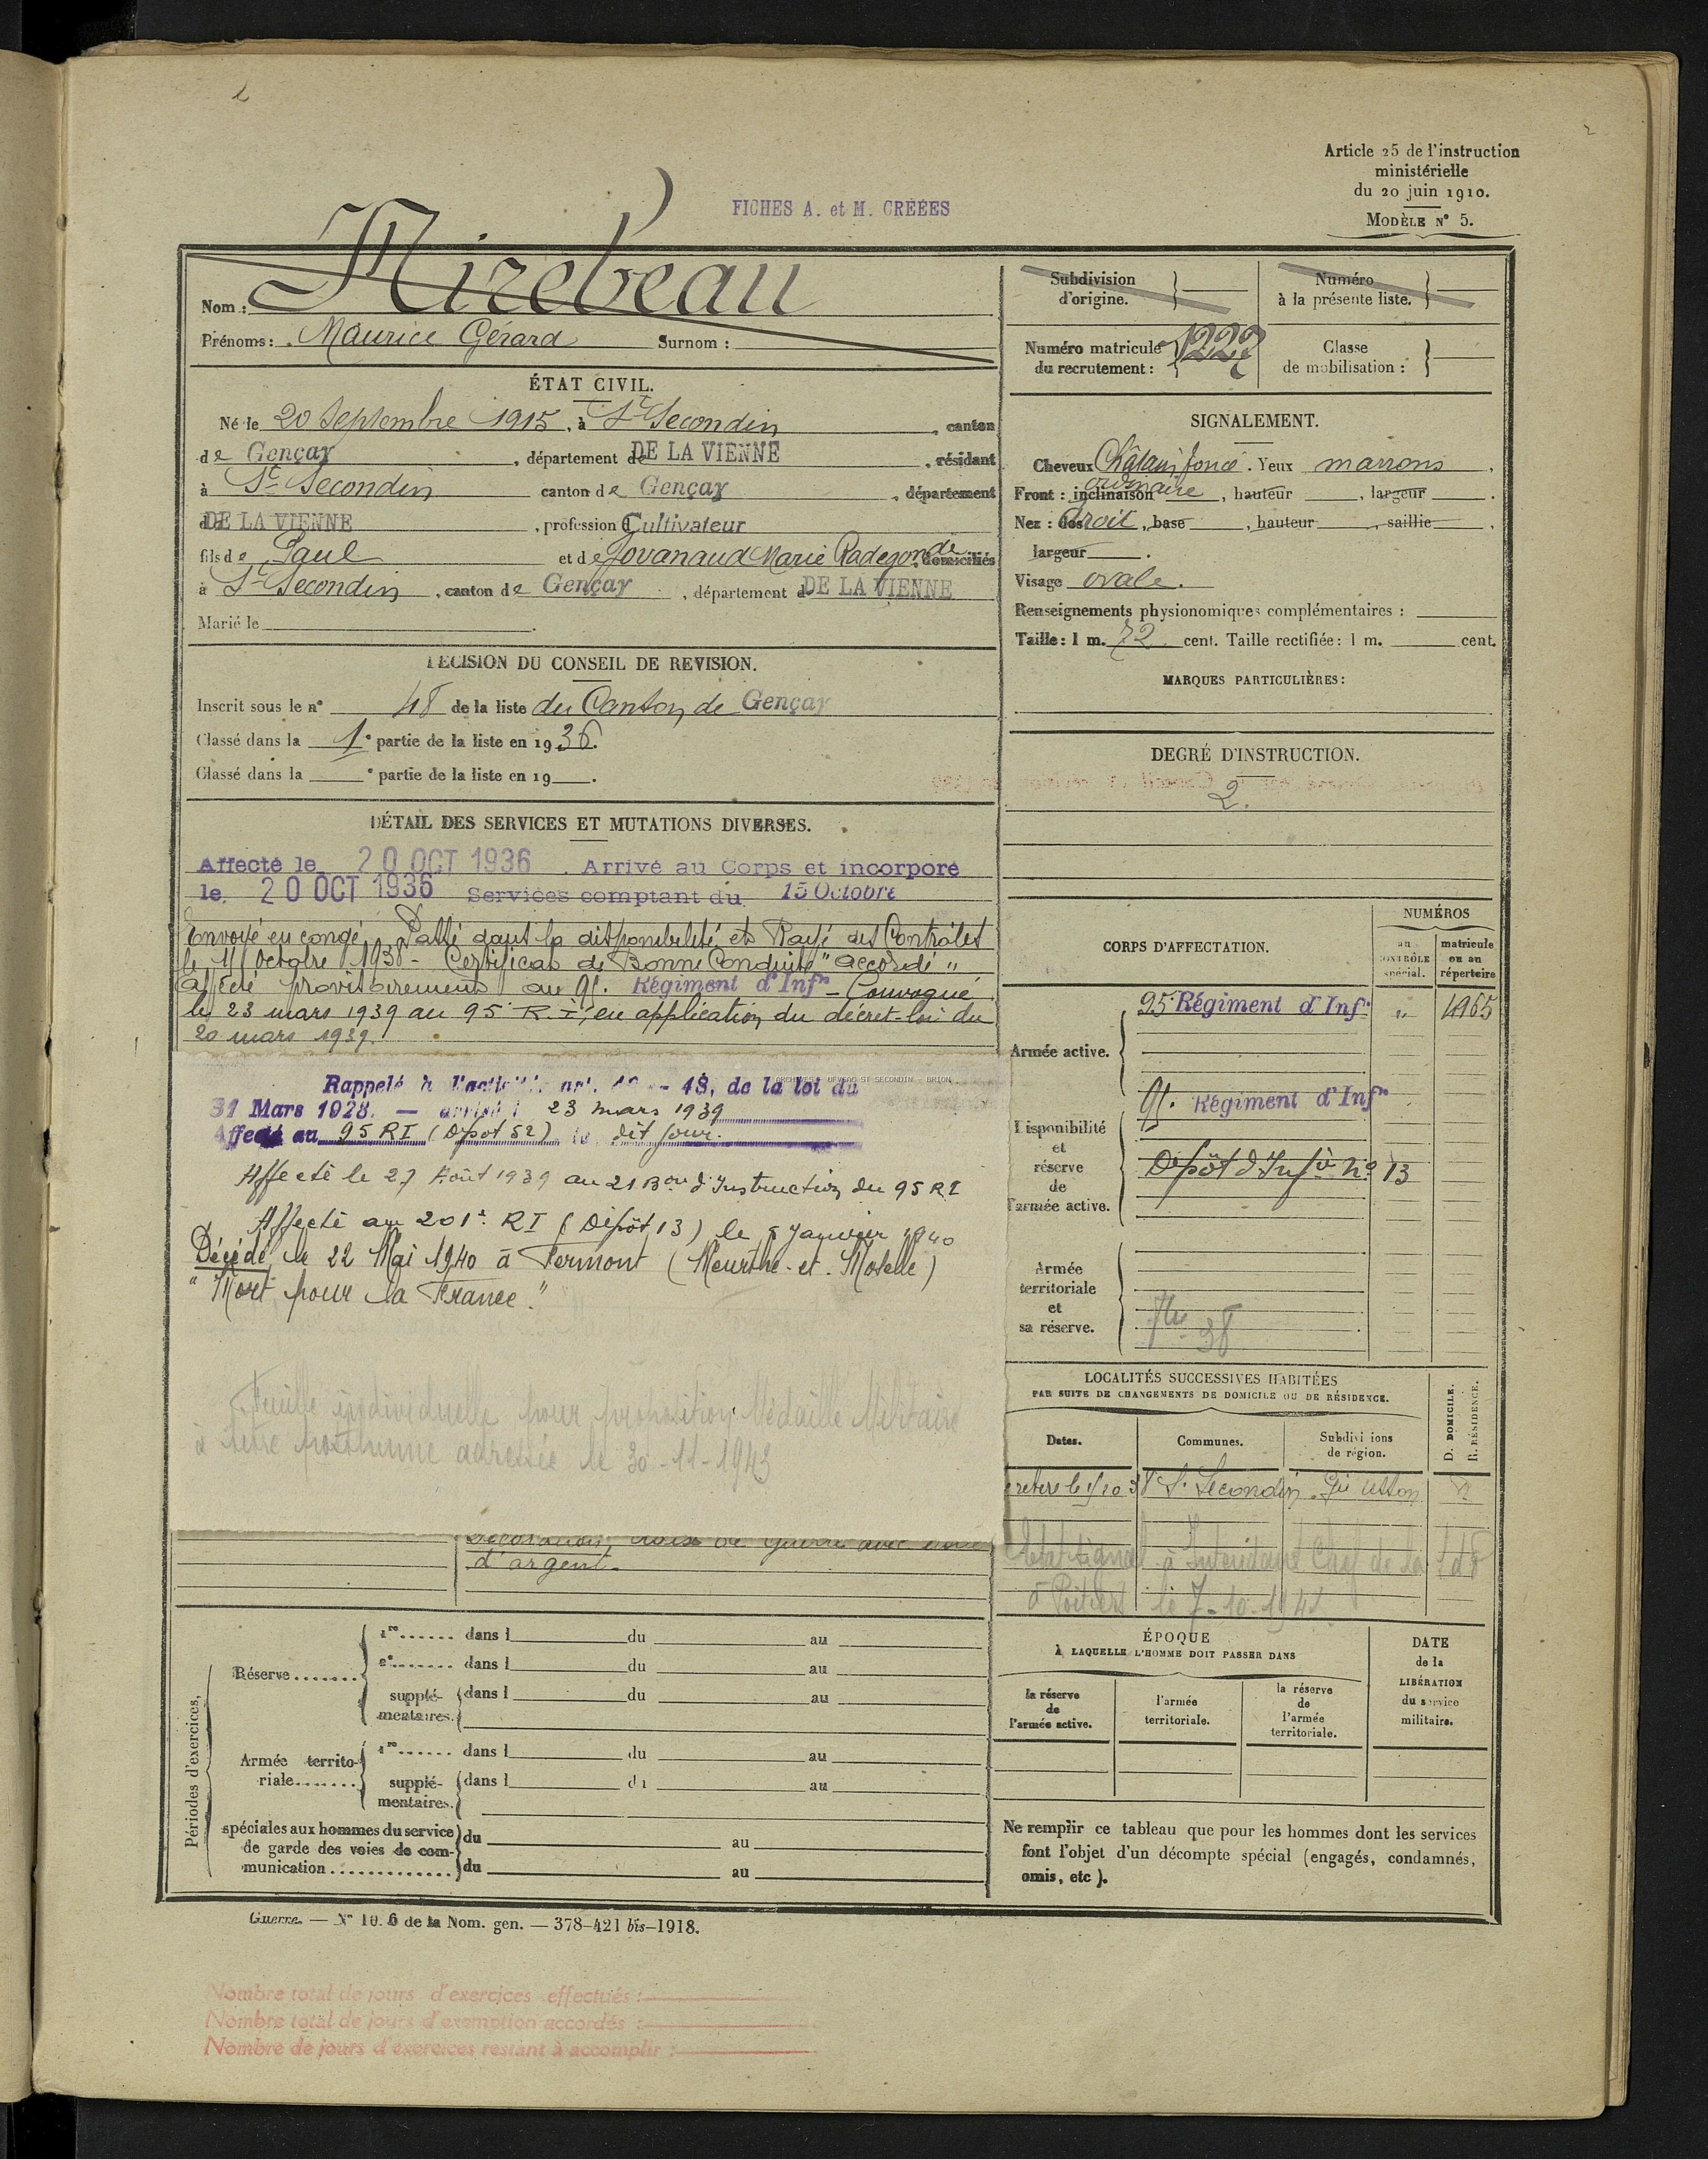 Article 25 de l'instruction
ministérielle
du 20 juin 1910.
MODÈLE N° 5.
FICHES A. et M. CRÉÉES
Nom : Mirebeau
Prénoms : Maurice Gérard Surnom :
ÉTAT CIVIL.
Né le 20 Septembre 1915, à St Secondin, canton
de Gençay, département de DE LA VIENNE, résidant
à St Secondin canton de Gençay, département
d DE LA VIENNE, profession d Cultivateur
fils de Paul et de Jovanaud Marie Radegonde, domiciliés
à St Secondin, canton de Gençay, département d DE LA VIENNE
Marié le .
DÉCISION DU CONSEIL DE REVISION.
Inscrit sous le n° 48 de la liste du Canton de Gençay
Classé dans la 1e partie de la liste en 1936.
Classé dans la e partie de la liste en 19 .
DÉTAIL DES SERVICES ET MUTATIONS DIVERSES.
Affecté le 20 OCT 1936. Arrivé au Corps et incorporé
le 20 OCT 1936 Services comptant du 15 Octobre
Envoyé en congé. Passé dans la disponibilité et Rayé des Contrôles
le Octobre 1938 - Certificat de Bonne Conduite "accordé"
affecté provisoirement au 95. Régiment d'Infie - Convoqué
le 23 mars 1939 au 95e R.I, en application du décret-loi du
20 mars 1939.
Rappelé à l'activité art. 48, de la loi du
31 Mars 1928. — arrivé l 23 mars 1939
Affecté au 95 RI (Dépôt 52) le dit jour.
Affecté le 27 Août 1939 au 21 Bon d'Instruction du 95 RI
Affecté au 201e RI (Dépôt 13) le 5 Janvier 1940
Décédé le 22 Mai 1940 à Fermont (Meurthe-et-Moselle)
"Mort pour la France."
Feuille individuelle pour proposition Médaille Militaire
à titre posthume adressée le 30-11-1943
Décoration, croix de guerre avec étoile
d'argent.
Périodes d'exercices,
Réserve
1re dans l du au
2e dans l du au
supplémentaires. dans l du au
Armée territoriale
1re dans l du au
supplémentaires. dans l du au
spéciales aux hommes du service
de garde des voies de com-
munication
du au
du au
Guerre. — N° 10. 6 de la Nom. gen. — 378-421 bis-1918.
Nombre total de jours d'exercices effectués :
Nombre total de jours d'exemption accordés :
Nombre de jours d'exercices restant à accomplir :
Subdivision
d'origine.
Numéro
à la présente liste.
Numéro matricule
du recrutement : 1227
Classe
de mobilisation :
SIGNALEMENT.
Cheveux Châtain foncé. Yeux marrons,
Front : inclinaison ordinaire, hauteur , largeur .
Nez : dos droit, base , hauteur , saillie ,
largeur .
Visage ovale.
Renseignements physionomiques complémentaires :
Taille : 1 m. 72 cent. Taille rectifiée : 1 m. cent.
MARQUES PARTICULIÈRES :
DEGRÉ D'INSTRUCTION.
2.
CORPS D'AFFECTATION.
NUMÉROS
au
CONTRÔLE
spécial.
matricule
ou au
répertoire
Armée active.
95e Régiment d'Infie " 4965
Disponibilité
et
réserve
de
l'armée active.
95. Régiment d'Infie
Dépôt d'Infie No 13
Armée
territoriale
et
sa réserve.
38
LOCALITÉS SUCCESSIVES HABITÉES
PAR SUITE DE CHANGEMENTS DE DOMICILE OU DE RÉSIDENCE.
Dates.
Communes.
Subdivisions
de région.
D. DOMICILE.
R. RÉSIDENCE.
St Secondin Gie Usson
à Intendant Chef de la
à Poitiers le 7-10-1941
ÉPOQUE
À LAQUELLE L'HOMME DOIT PASSER DANS
la réserve
de
l'armée active.
l'armée
territoriale.
la réserve
de
l'armée
territoriale.
DATE
de la
LIBÉRATION
du service
militaire.
Ne remplir ce tableau que pour les hommes dont les services
font l'objet d'un décompte spécial (engagés, condamnés,
omis, etc ).